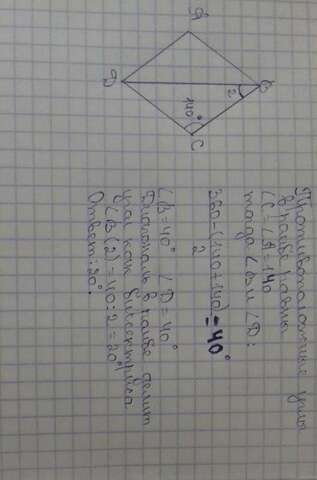 A
B
2
D
140°
C
Противоположные углы
в ромбе равны
∠C = ∠A = 140
тогда ∠B и ∠D:
360-(140+140)/2 = 40°
∠B = 40° ∠D = 40°
Диагональ в ромбе делит
угол как биссектриса
∠B(2) = 40:2 = 20°
Ответ: 20°.